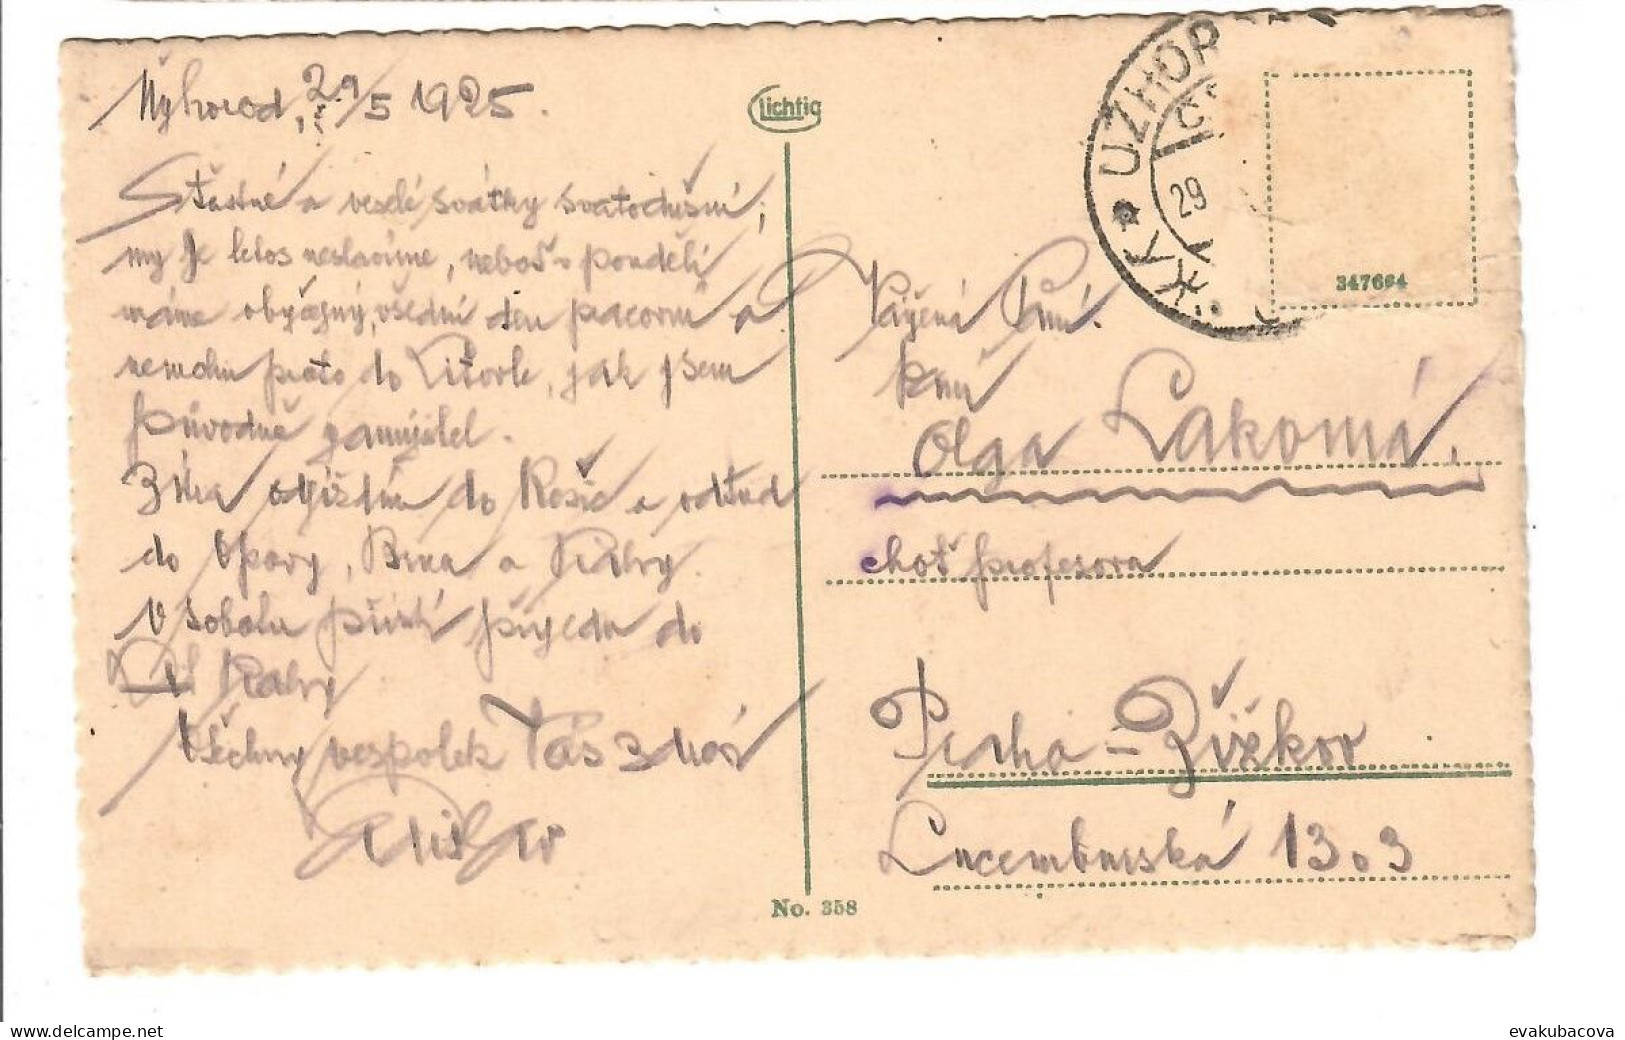 Užhorod, 29/5 1925.
Šťastné a veselé svátky svatodušní,
my je letos neslavíme, neboť v pondělí
máme obyčejný, všední den pracovní a
nemohu proto do Litovle, jak jsem
původně zamýšlel.
Zítra odjíždím do Košic a odtud
do Opavy, Brna a Prahy.
V sobotu příští přijedu do
Prahy
Všechny vespolek Vás zdraví
Lichtig
No. 358
UŽHOROD
29
347664
Vážená Paní.
Paní
Olga Lakomá,
choť profesora
Praha - Žižkov
Lucemburská 13.3
evakubacova